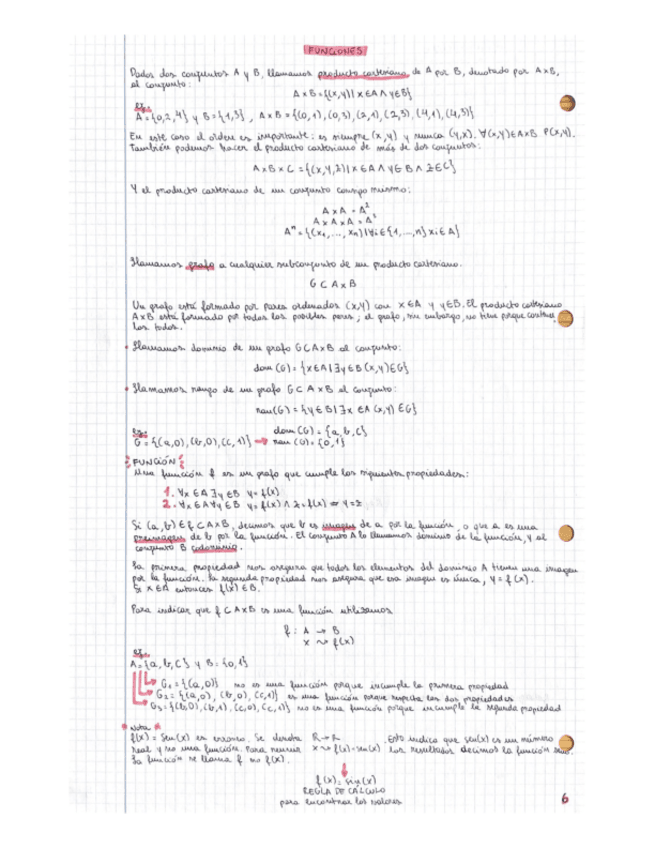 FUNCIONES
Dados dos conjuntos A y B, llamamos producto cartesiano de A por B, denotado por A×B,
al conjunto:
A×B={(x,y)| x∈A ∧ y∈B}
ej:
A={0,2,4} y B={1,3}, A×B={(0,1),(0,3),(2,1),(2,3),(4,1),(4,3)}
En este caso el orden es importante: es siempre (x,y) y nunca (y,x). ∀(x,y)∈A×B P(x,y).
También podemos hacer el producto cartesiano de más de dos conjuntos:
A×B×C={(x,y,z)| x∈A ∧ y∈B ∧ z∈C}
Y el producto cartesiano de un conjunto consigo mismo:
A×A=A²
A×A×A=A³
Aⁿ={(x₁,...,xₙ)|∀i∈{1,...,n} xi∈A}
Llamamos grafo a cualquier subconjunto de un producto cartesiano.
G⊂A×B
Un grafo está formado por pares ordenados (x,y) con x∈A y y∈B. El producto cartesiano
A×B está formado por todos los posibles pares; el grafo, sin embargo, no tiene porque contener
los todos.
• Llamamos dominio de un grafo G⊂A×B al conjunto:
dom(G)={x∈A|∃y∈B (x,y)∈G}
• Llamamos rango de un grafo G⊂A×B al conjunto:
ran(G)={y∈B|∃x∈A (x,y)∈G}
ej:
G={(a,0),(b,0),(c,1)} → dom(G)={a,b,c}
ran(G)={0,1}
FUNCIÓN
Una función f es un grafo que cumple las siguientes propiedades:
1. ∀x∈A ∃y∈B y=f(x)
2. ∀x∈A ∀y∈B y=f(x) ∧ z=f(x) ⇒ y=z
Si (a,b)∈f⊂A×B, decimos que b es imagen de a por la función, o que a es una
preimagen de b por la función. El conjunto A lo llamamos dominio de la función, y al
conjunto B codominio.
La primera propiedad nos asegura que todos los elementos del dominio A tienen una imagen
por la función. La segunda propiedad nos asegura que esa imagen es única, y=f(x).
Si x∈A entonces f(x)∈B.
Para indicar que f⊂A×B es una función utilizamos
f: A → B
x ⇝ f(x)
ej:
A={a,b,c} y B={0,1}
G₁={(a,0)} no es una función porque incumple la primera propiedad
G₂={(a,0),(b,0),(c,1)} es una función porque respeta las dos propiedades
G₃={(b,0),(b,1),(c,0),(c,1)} no es una función porque incumple la segunda propiedad
Nota
f(x)=sen(x) es erroneo. Se denota R→R Esto indica que sen(x) es un número
real y no una función. Para x⇝f(x)=sen(x) los resultados decimos la función
La función se llama f no f(x).
f(x)=sin(x)
REGLA DE CÁLCULO
para encontrar los valores
6